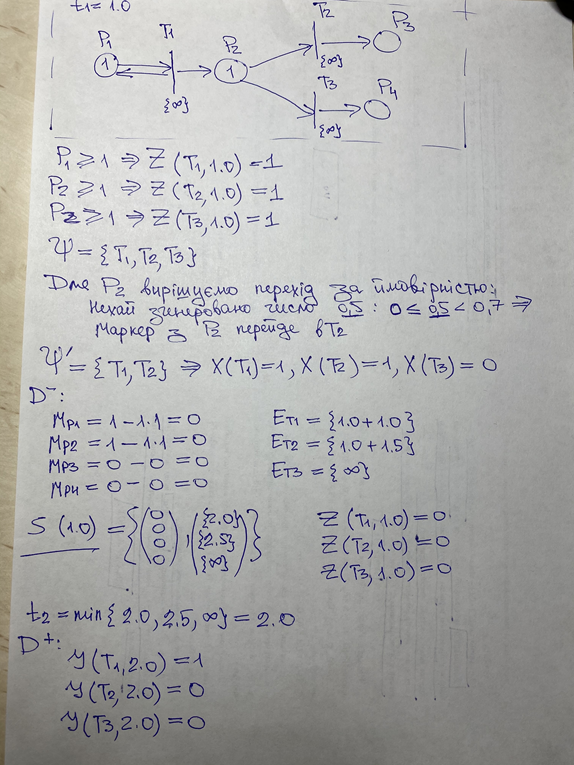 t₁=1.0
P₁ T₁ P₂ T₂ P₃
1 1 {∞} T₃ P₄
{∞} {∞}
P₁ ⩾ 1 ⇒ Z (T₁, 1.0) = 1
P₂ ⩾ 1 ⇒ Z (T₂, 1.0) = 1
P₂ ⩾ 1 ⇒ Z (T₃, 1.0) = 1
Ψ = {T₁, T₂, T₃}
Для P₂ вирішуємо перехід за ймовірністю:
Нехай згенеровано число 0,5 : 0 ≤ 0,5 < 0,7 ⇒
Маркер з P₂ перейде в T₂
Ψ' = {T₁, T₂} ⇒ X(T₁)=1, X(T₂)=1, X(T₃) = 0
D⁻:
Mp₁ = 1 – 1·1 = 0 Eт₁ = {1.0+1.0}
Mp₂ = 1 – 1·1 = 0 Eт₂ = {1.0+1.5}
Mp₃ = 0 – 0 = 0 Eт₃ = {∞}
Mp₄ = 0 – 0 = 0
S (1.0) = {(0 0 0 0), ({2.0} {2.5} {∞})} Z (T₁, 1.0) = 0
Z (T₂, 1.0) = 0
Z (T₃, 1.0) = 0
t₂ = min{2.0, 2.5, ∞} = 2.0
D⁺:
У(T₁, 2.0) = 1
У(T₂, 2.0) = 0
У(T₃, 2.0) = 0